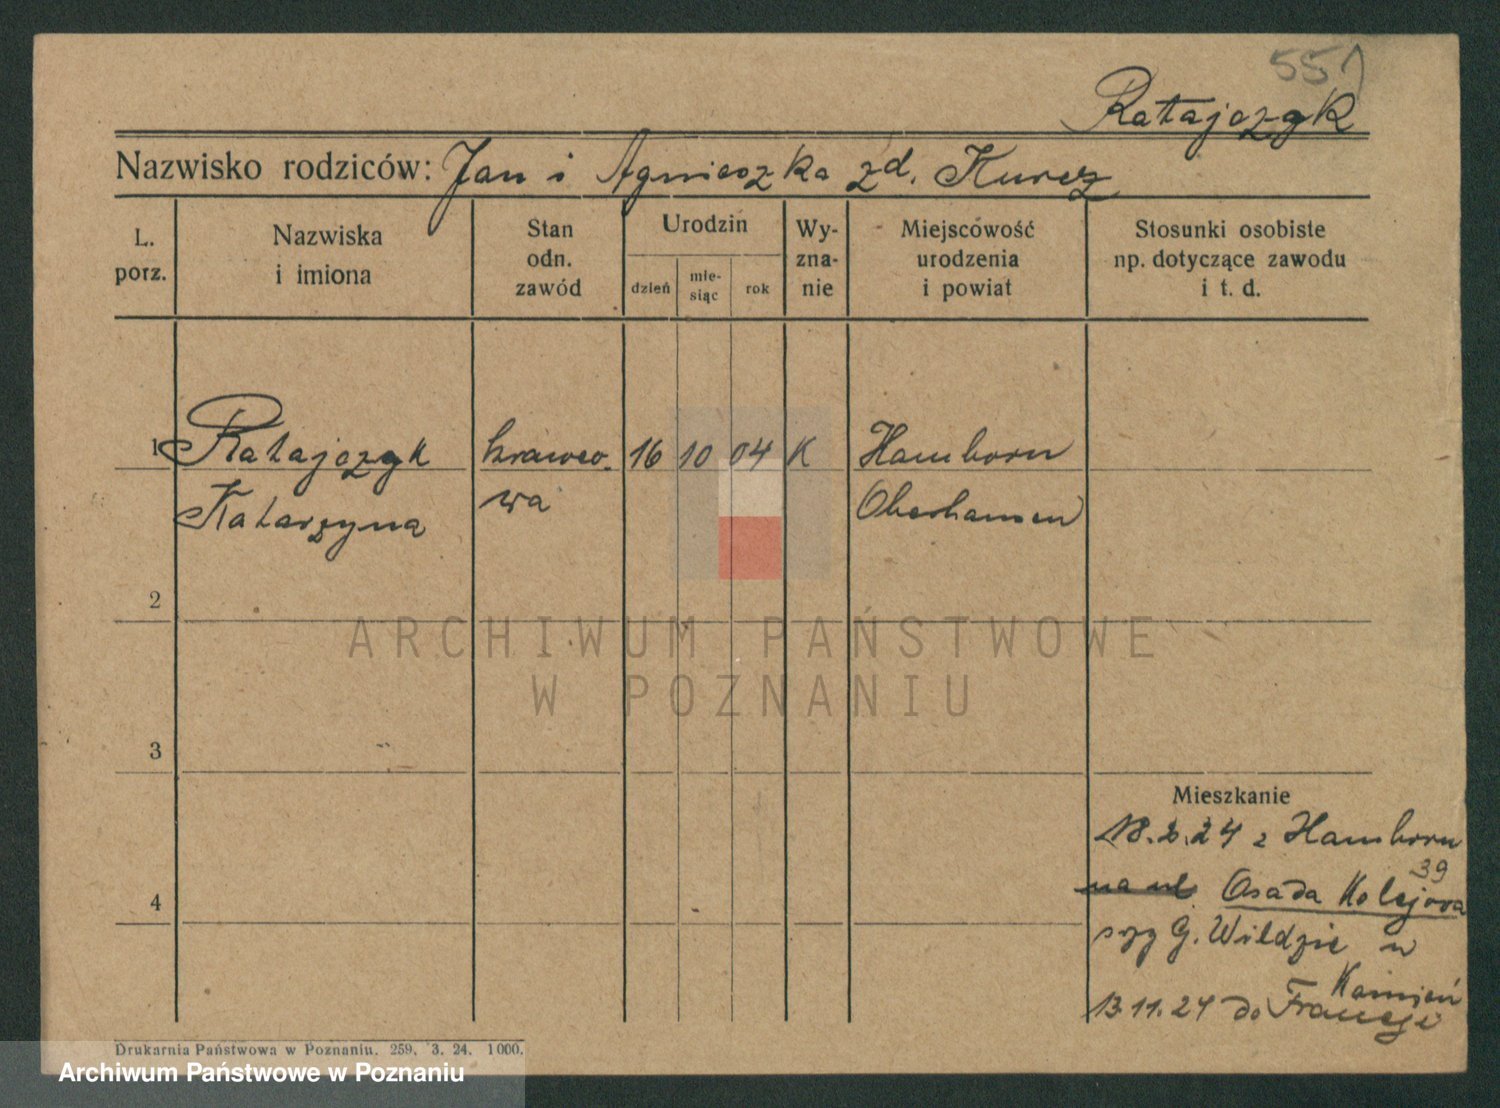 551
Ratajczyk
Nazwisko rodziców: Jan i Agnieszka zd. Kurcz
L. porz.
Nazwiska i imiona
Stan odn. zawód
Urodzin
dzień
mie-siąc
rok
Wy-zna-nie
Miejscowość urodzenia i powiat
Stosunki osobiste np. dotyczące zawodu i t. d.
1 Ratajczyk krawco- 16 10 04 K Hamborn
Katarzyna wa Oberhausen
2
ARCHIWUM PAŃSTWOWE
W POZNANIU
3
Mieszkanie
18.2.24 z Hamborn
39
na ul Osada Kolejowa
4
przy G. Wildzie w
Kamień
13.11.24 do Francji
Drukarnia Państwowa w Poznaniu. 259. 3. 24. 1000.
Archiwum Państwowe w Poznaniu